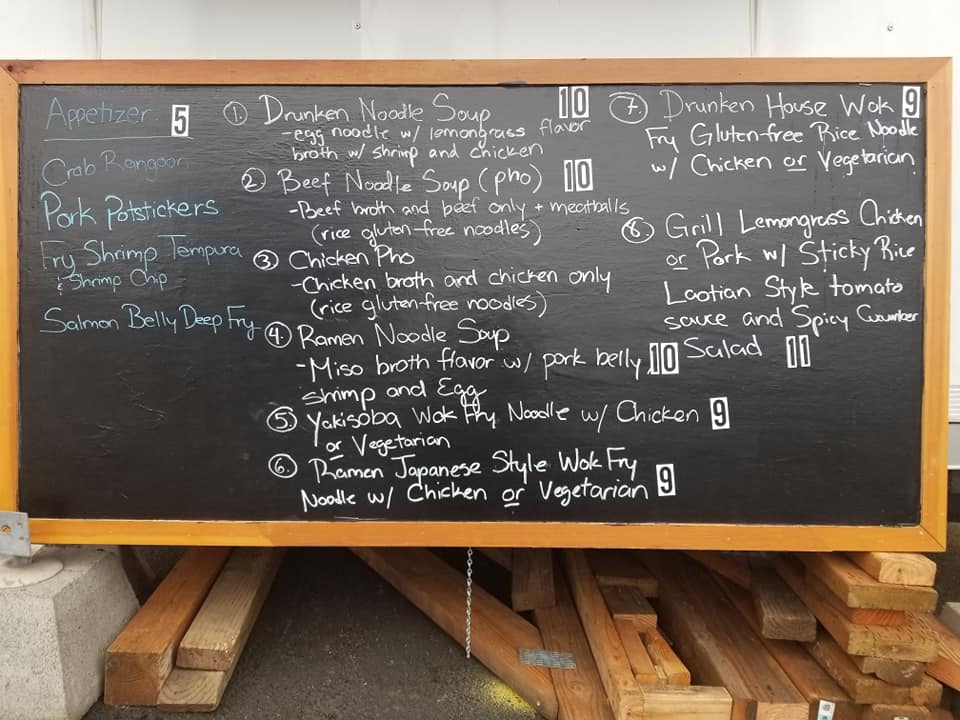 Appetizer 5
Crab Rangoon
Pork Potstickers
Fry Shrimp Tempura
& Shrimp Chip
Salmon Belly Deep Fry
1. Drunken Noodle Soup 10
-egg noodle w/ lemongrass flavor
broth w/ shrimp and chicken
2 Beef Noodle Soup (pho) 10
-Beef broth and beef only + meatballs
(rice gluten-free noodles)
3 Chicken Pho
-Chicken broth and chicken only
(rice gluten-free noodles)
4. Ramen Noodle Soup
-Miso broth flavor w/ pork belly, 10
shrimp and Egg
5. Yakisoba Wok Fry Noodle w/ Chicken 9
or Vegetarian
6. Ramen Japanese Style Wok Fry
Noodle w/ Chicken or Vegetarian 9
7. Drunken House Wok 9
Fry Gluten-free Rice Noodle
w/ Chicken or Vegetarian
8. Grill Lemongrass Chicken
or Pork w/ Sticky Rice
Laotian Style tomato
sauce and Spicy Cucumber
Salad 11